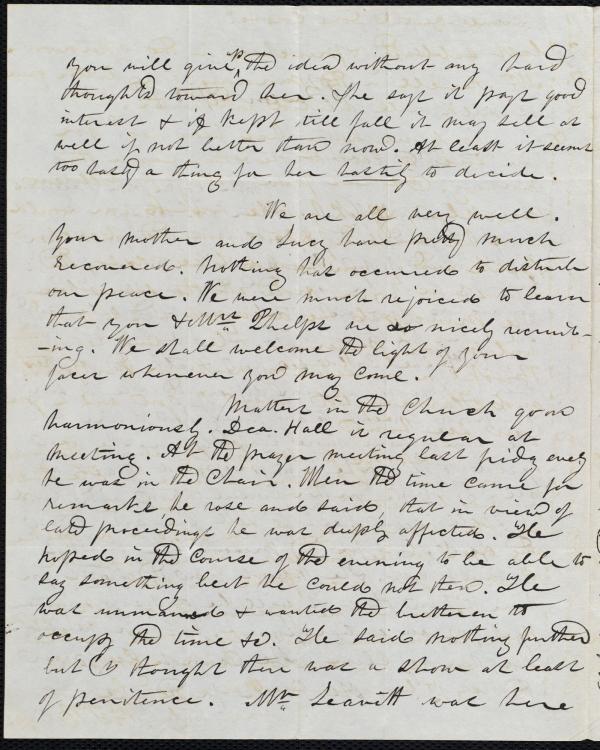 you will give up the idea without any hard
thoughts toward her. She says it pays good
interest & if kept till fall it may sell as
well if not better than now. At least it seems
too hasty a thing for her hastily to decide.
We are all very well.
Your mother and Lucy have pretty much
recovered. Nothing has occurred to disturb
our peace. We were much rejoiced to learn
that you & Mrs Phelps are so nicely recruit-
-ing. We shall welcome the light of your
faces whenever you may come.
Matters in the Church go on
harmoniously. Dea. Hall is regular at
meeting. At the prayer meeting last friday eveg
he was in the Chair. When the time came for
remarks he rose and said, that in view of
late proceedings he was deeply affected. He
hoped in the course of the evening to be able to
say something but he could not then. He
was unmanned & wanted the brethren to
occupy the time &c. He said nothing further
but I thought there was a show at least
of penitence. Mr Leavitt was here